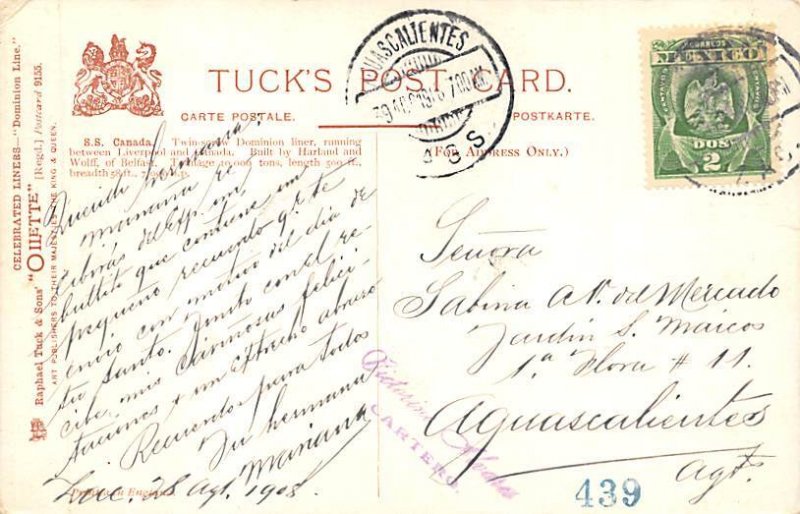 CELEBRATED LINERS—"Dominion Line."
Raphael Tuck & Sons' "OILETTE" [Regd.] Postcard 9155.
ART PUBLISHERS TO THEIR MAJESTIES THE KING & QUEEN.
TUCK'S POST CARD.
CARTE POSTALE.
POSTKARTE.
(FOR ADDRESS ONLY.)
S.S. Canada. Twin-screw Dominion liner, running
between Liverpool and Canada. Built by Harland and
Wolff, of Belfast. Tonnage 10,000 tons, length 500 ft.,
breadth 58 ft.,
Querida hermana.
Mañana re
cibirás del Exp. un
bultito que contiene un
pequeño recuerdo q. te
envio con motivo del dia de
tu santo. Junto con él re
cibe mis cariñosas felici
taciones y un estrecho abrazo
Recuerdos para todos
Tu hermana
Mariana
Zac. 28 Agt. 1908.
Printed in England
Señora
Sabina A. V. de Mercado
Jardin S. Marcos
1.a Flora # 11.
Aguascalientes
Agts.
CARTERO.
439
AGUASCALIENTES
CORREOS
MEXICO
DOS
2